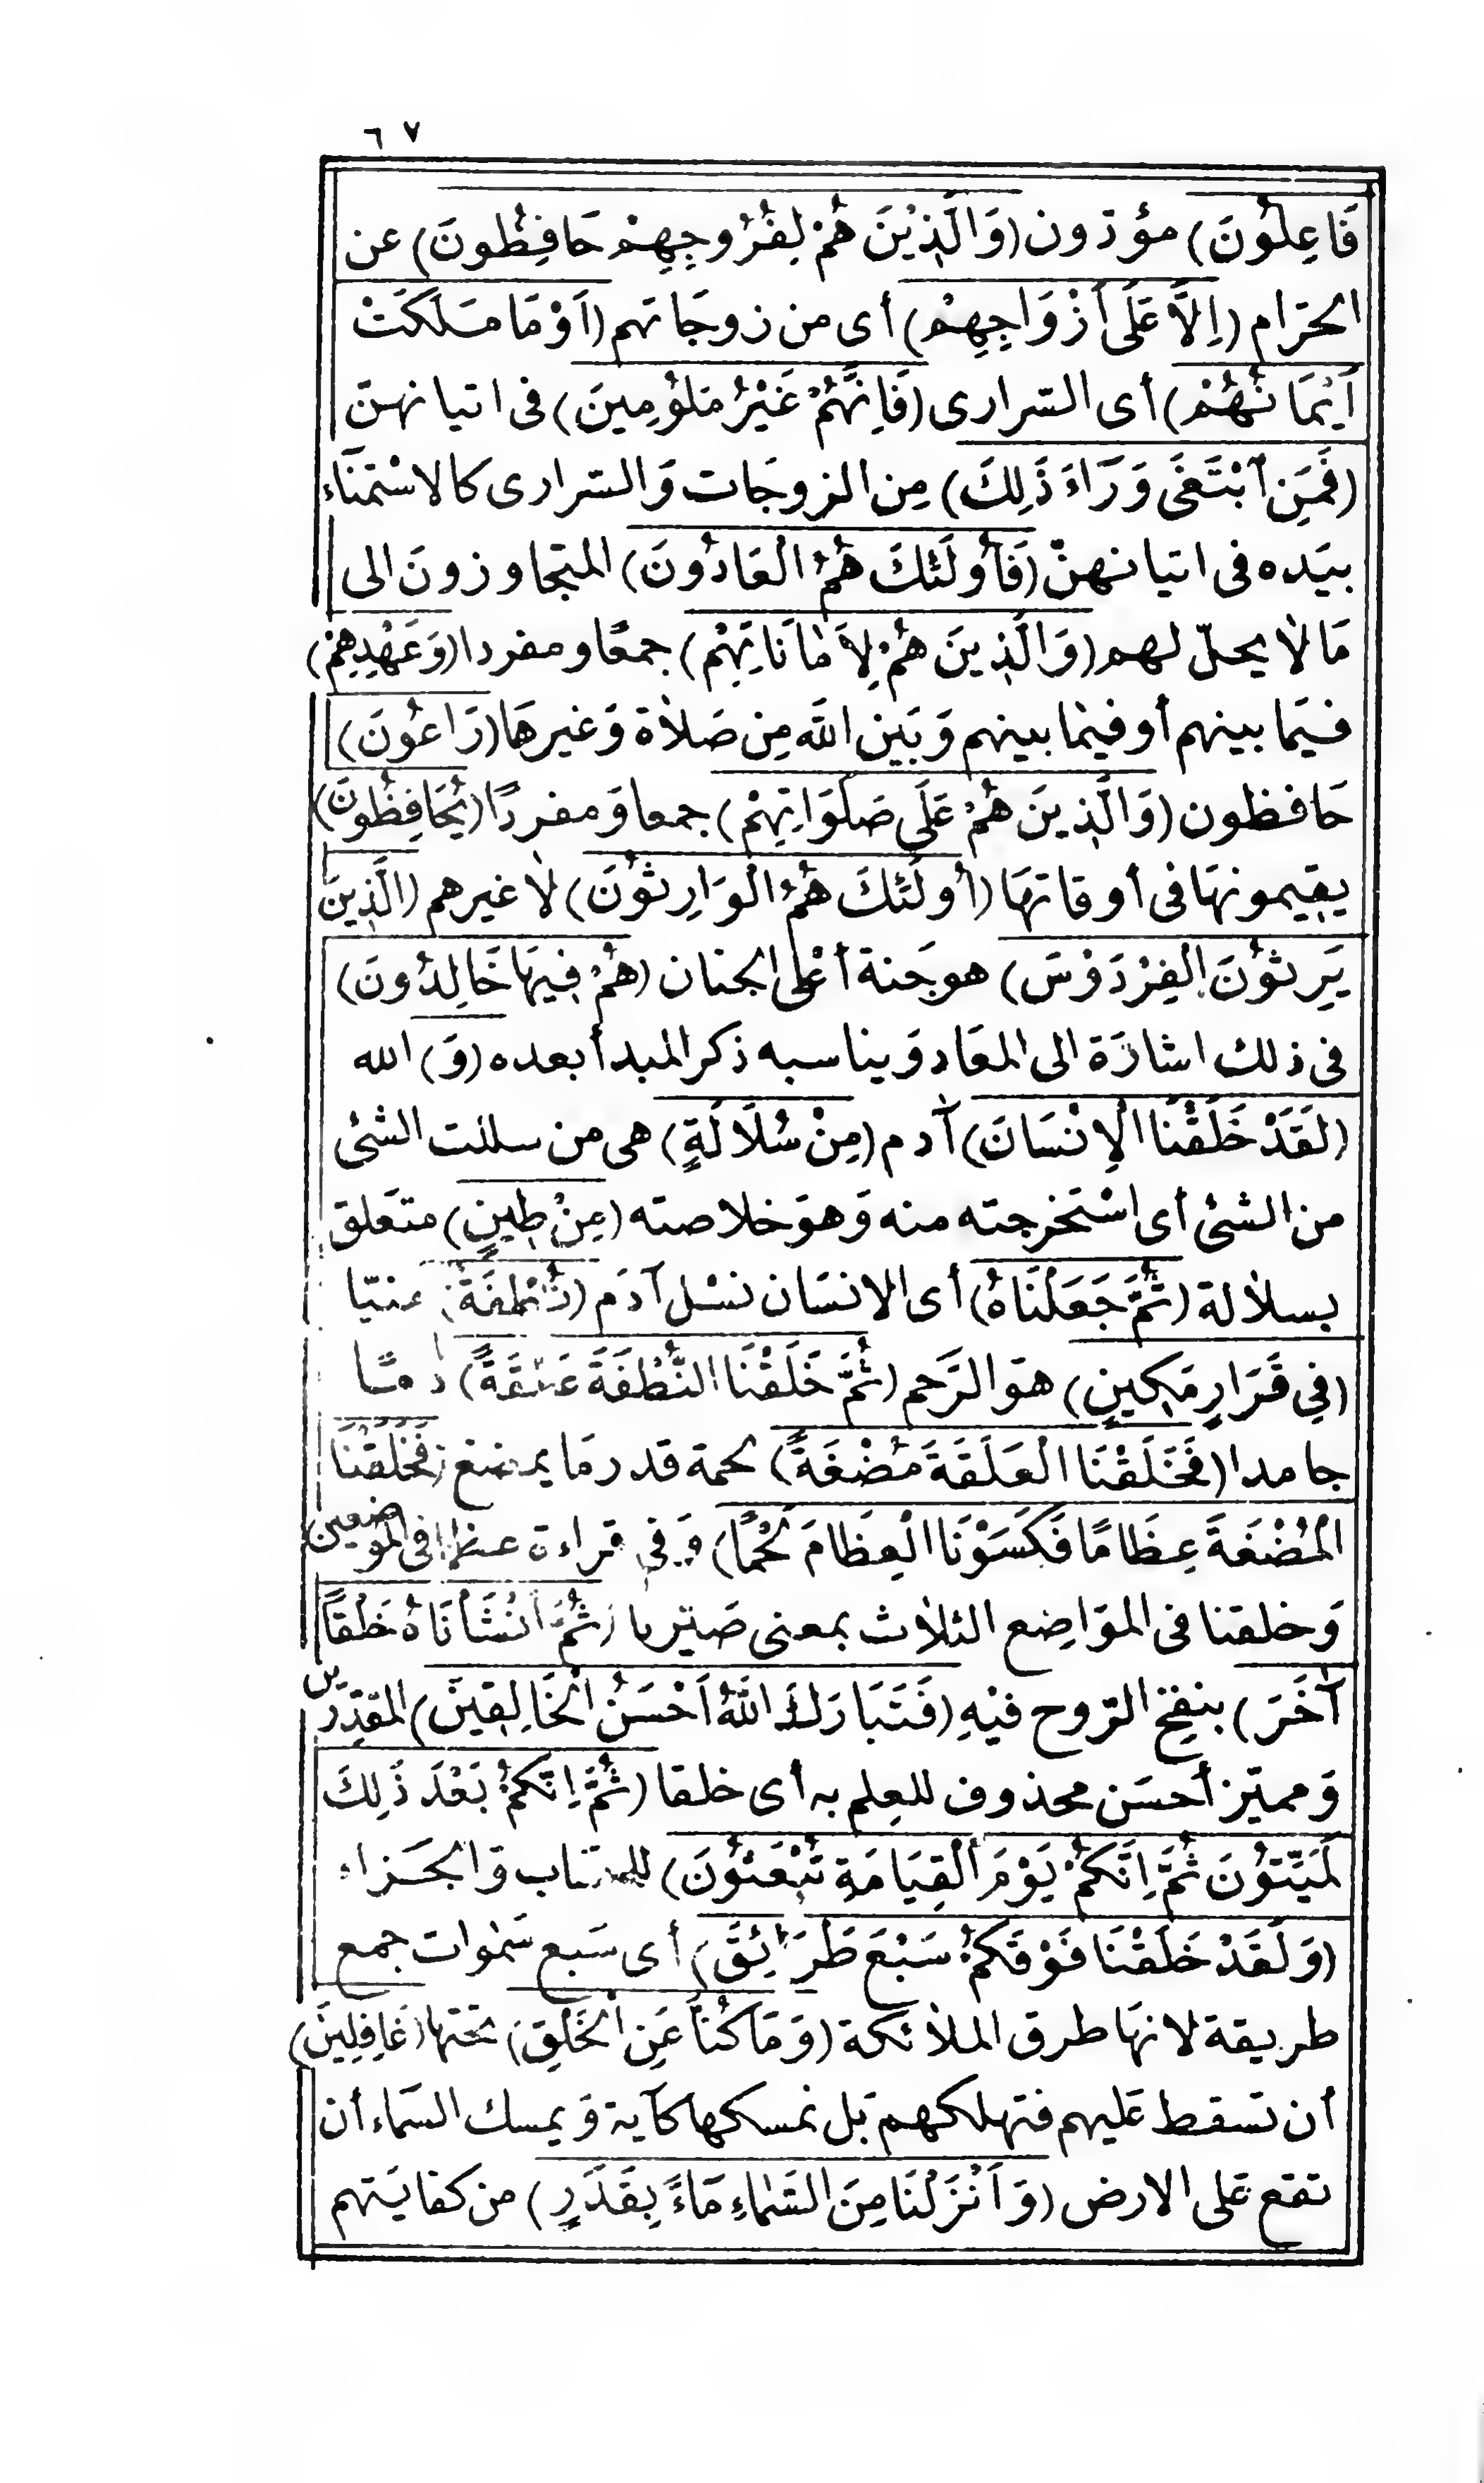 ٦٧
فَاعِلُونَ) مؤدّون (وَالَّذِيْنَ هُمْ لِفُرُوجِهِمْ حَافِظُونَ) عن
الحرَام (اِلَّا عَلَى أَزْوَاجِهِمْ) أى من زوجَاتهم (اَوْ مَا مَلَكَتْ
اَيْمَانُهُمْ) أى السّرارى (فَاِنَّهُمْ غَيْرُ مَلُوْمِينَ) فى اتيانهنّ
(فَمَنِ ابْتَغَى وَرَآءَ ذَلِكَ) مِن الزوجَات وَالسّرارى كالاسْتمنَآء
بيَده فى اتيانهنّ (فَأُولَئِكَ هُمُ الْعَادُونَ) المتجاوزونَ الى
مَا لا يحلّ لهم (وَالَّذِينَ هُمْ لِاَمَانَاتِهِمْ) جمعًا ومفردا (وَعَهْدِهِمْ)
فيمَا بينهم أو فيمَا بينهم وَبَين اللّه مِن صَلاة وَغيرهَا (رَاعُونَ)
حَافظون (وَالَّذِينَ هُمْ عَلَى صَلَوَاتِهِمْ) جمعا وَمفردًا (يُحَافِظُونَ)
يقيمونهَا فى أوقاتهَا (أُولَئِكَ هُمُ الْوَارِثُونَ) لا غيرهم (الَّذِينَ
يَرِثُونَ الْفِرْدَوْسَ) هو جَنة أعْلى الجنان (هُمْ فِيهَا خَالِدُونَ)
فى ذلك اشارَة الى المعَاد وَيناسبه ذكر المبدأ بعده (وَ) الله
(لَقَدْ خَلَقْنَا الْاِنْسَانَ) آدم (مِنْ سُلَالَةٍ) هى من سللت الشئ
من الشئ أى اسْتخرجته منه وَهوَ خلاصته (مِنْ طِينٍ) متعَلق
بسلالة (ثُمَّ جَعَلْنَاهُ) أى الانسَان نسْل آدَم (نُطْفَةً) منيّا
(فِي قَرَارٍ مَكِينٍ) هوَ الرَّحم (ثُمَّ خَلَقْنَا النُّطْفَةَ عَلَقَةً) دمًا
جامدا (فَخَلَقْنَا الْعَلَقَةَ مُضْغَةً) لحمة قدر مَا يمضغ (فَخَلَقْنَا
الْمُضْغَةَ عِظَامًا فَكَسَوْنَا الْعِظَامَ لَحْمًا) وَفى قراءة عظما فى الموضعين
وَخلقنا فى الموَاضِع الثلاث بمعنى صَيّرنا (ثُمَّ اَنْشَأْنَاهُ خَلْقًا
آخَرَ) بنفخ الرّوح فيْهِ (فَتَبَارَكَ اللَّهُ اَحْسَنُ الْخَالِقِيْنَ) المقدّرين
وَمميّز أحسَن محذوف للعِلم به أى خلقا (ثُمَّ اِنَّكُمْ بَعْدَ ذَلِكَ
لَمَيِّتُوْنَ ثُمَّ اِنَّكُمْ يَوْمَ الْقِيَامَةِ تُبْعَثُوْنَ) للحساب وَالجَزاء
(وَلَقَدْ خَلَقْنَا فَوْقَكُمْ سَبْعَ طَرَائِقَ) أى سَبع سَمٰوات جمع
طريقة لانهَا طرق الملائكة (وَمَا كُنَّا عَنِ الْخَلْقِ) تحتها (غَافِلِينَ)
أن تسقط عَليهم فتهلكهم بَل نمسكها كآية وَيمسك السّمَاء أن
تقع عَلى الارض (وَاَنْزَلْنَا مِنَ السَّمَاءِ مَاءً بِقَدَرٍ) من كفايَتهم